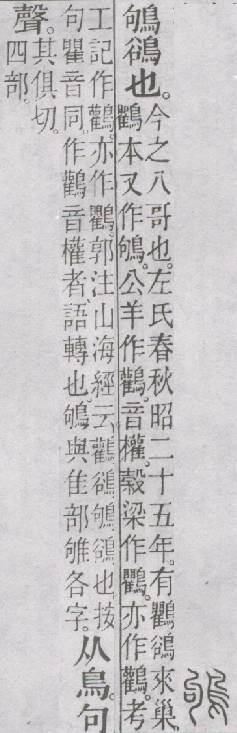 鴝
鴝鵒也。
今之八哥也。左氏春秋昭二十五年。有鸜鵒來巢。
鸜本又作鴝。公羊作鸛。音權。穀梁作鸜。亦作鸛。考
工記作鸛。亦作鸜。郭注山海經云。鸜鵒、鴝鵒也。按
句瞿音同。作鸛音權者、語轉也。鴝與隹部雊各字。
从鳥。句
聲。
其俱切。
四部。